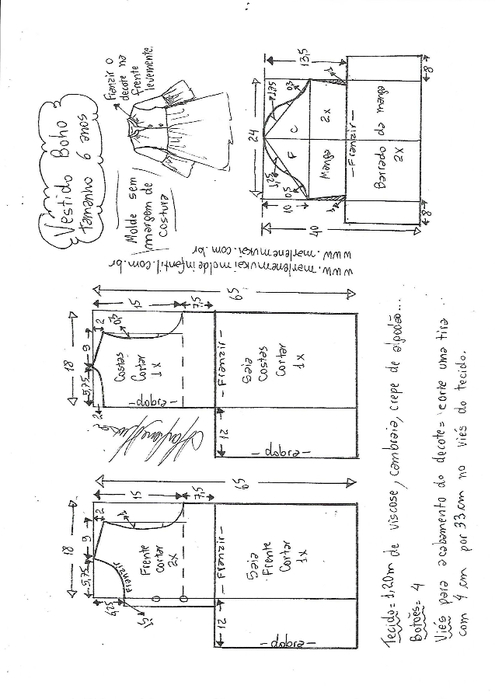 Vestido Boho
tamanho 6 anos
Franzir o
decote na
frente
levemente.
Molde sem
margem de
costura
www.marlenemukaimoldeinfantil.com.br
www.marlenemukai.com.br
24
13,5
1,25
0,5
F
C
2x
Manga
10
40
-Franzir-
Barrado da manga
2x
8
8
65
15
7,5
18
5,75
9
2
2
Costas
Cortar
1x
-dobra-
-Franzir-
12
Saia
Costas
Cortar
1x
-dobra-
65
15
7,5
18
5,75
9
2
Franzir
6,25
1,5
Frente
cortar
2x
-Franzir-
12
Saia
Frente
Cortar
1x
-dobra-
Tecido= 1,20m de viscose, cambraia, crepe de algodão...
Botões= 4
Viés para acabamento do decote= corte uma tira
com 4 cm por 33cm no viés do tecido.